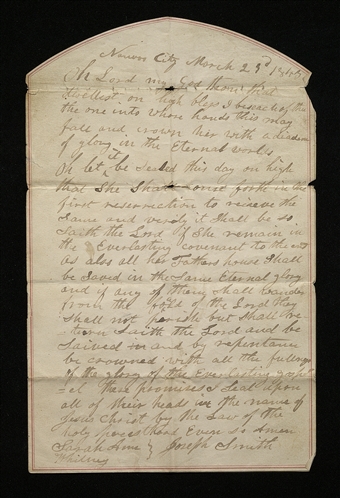 Nauvoo City March 23rd
Oh Lord my God thou that
dwellest on high bless I beseech of thee
the one into whose hands this may
fall and crown her with a diadem
of glory in the Eternal worlds
Oh let it be sealed this day on high
that She Shall come forth in the
first reserrection to recieve the
Same and verily it Shall be so
Saith the Lord if She remain in
the Everlasting covenant to the end
as also all her Fathers house Shall
be Saved in the Same Eternal glory
and if any of them Shall wander
from the fold of the Lord they
Shall not perish but Shall re-
turn Saith the Lord and be
Saived in and by repentance
be crowned with all the fullness
of the glory of the Everlasting gosp
=el these promises I Seal upon
all of their heads in the name of
Jesus Christ by the Law of the
holy priesthood Even so Amen
Sarah Ann } Joseph Smith
Whitney